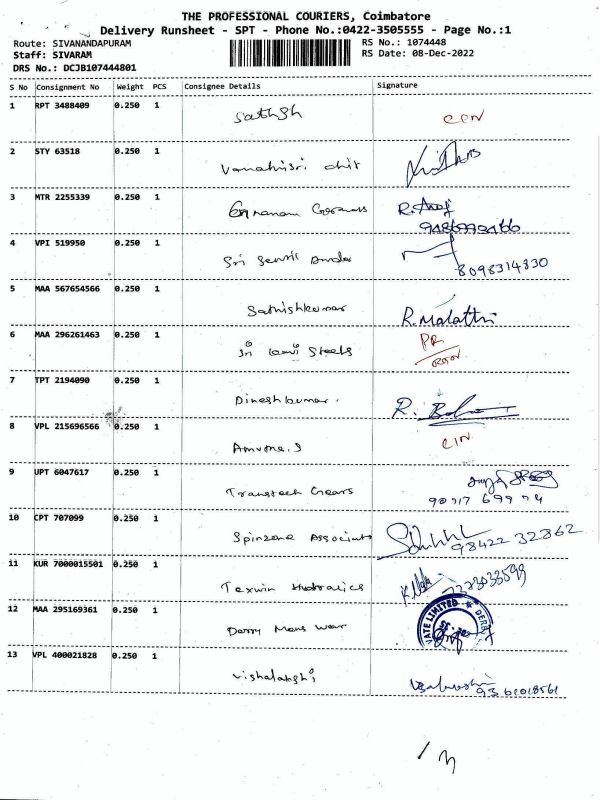 THE PROFESSIONAL COURIERS, Coimbatore
Delivery Runsheet - SPT - Phone No.:0422-3505555 - Page No.:1
Route: SIVANANDAPURAM
RS No.: 1074448
Staff: SIVARAM
RS Date: 08-Dec-2022
DRS No.: DCJB107444801
S No Consignment No Weight PCS Consignee Details Signature
1 RPT 3488409 0.250 1
Sathsh
2 STY 63518 0.250 1
chit
3 MTR 2255339 0.250 1
4 VPI 519950 0.250 1
Sri
8098314830
5 MAA 567654566 0.250 1
Sathishkumar R. Malathi
6 MAA 296261463 0.250 1
Steels
7 TPT 2194090 0.250 1
Dineshkumar. R.
8 VPL 215696566 0.250 1
9 UPT 6047617 0.250 1
Transtech Gears
10 CPT 707099 0.250 1
Spinzone Associats 98422 32862
11 KUR 7000015501 0.250 1
Texwin
12 MAA 295169361 0.250 1
VATE LIMITED
Mens Wear
13 VPL 400021828 0.250 1
Vishalakshi